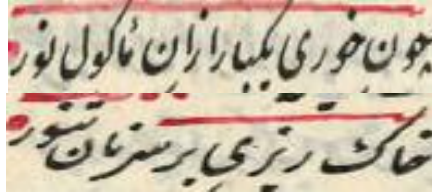 چون خوری یکبار ازان ماکول نور
خاک ریزی بر سر نان تنور